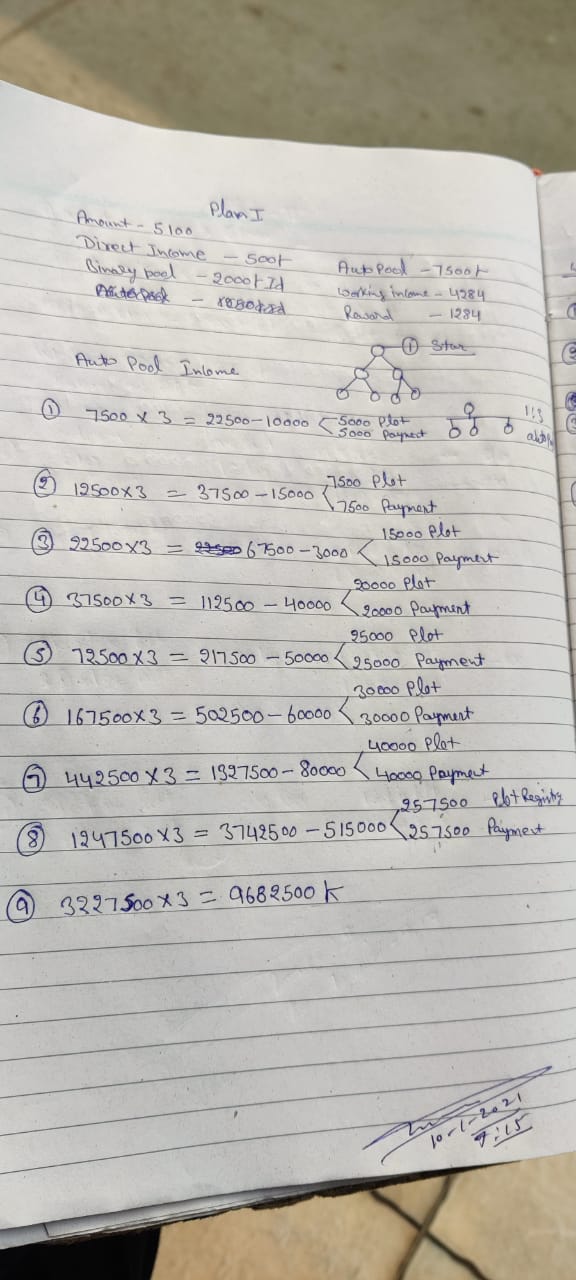 Plan I
Amount - 5100
Direct Income - 500/-
Binary pool - 2000/- Id
Auto Pool - 7500/-
Working income - 4284
Reward - 1284
① Star
Auto Pool Inlome
① 7500 × 3 = 22500 - 10000 < 5000 Plot
5000 Payment
1:3
② 12500×3 = 37500 - 15000 < 7500 Plot
7500 Payment
③ 22500×3 = 67500 - 3000 < 15000 Plot
15000 Payment
④ 37500×3 = 112500 - 40000 < 20000 Plot
20000 Payment
⑤ 72500×3 = 217500 - 50000 < 25000 Plot
25000 Payment
⑥ 167500×3 = 502500 - 60000 < 30000 Plot
30000 Payment
⑦ 442500×3 = 1327500 - 80000 < 40000 Plot
40000 Payment
⑧ 1247500×3 = 3742500 - 515000 < 257500 Plot Registry
257500 Payment
⑨ 3227500×3 = 9682500 K
10-1-2021
7:15